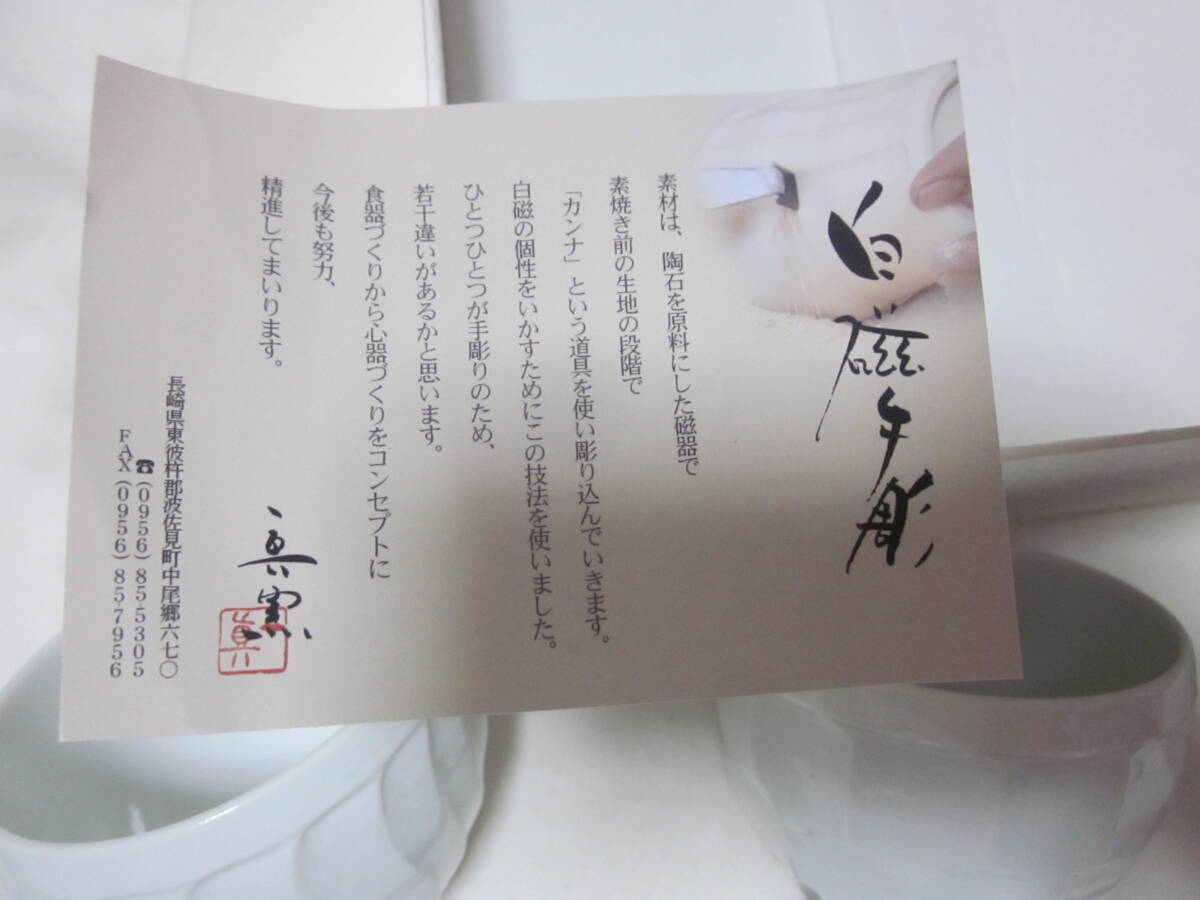 白磁手彫
素材は、陶石を原料にした磁器で
素焼き前の生地の段階で
「カンナ」という道具を使い彫り込んでいきます。
白磁の個性をいかすためにこの技法を使いました。
ひとつひとつが手彫りのため、
若干違いがあるかと思います。
食器づくりから心器づくりをコンセプトに
今後も努力、
精進してまいります。
一真窯
長崎県東彼杵郡波佐見町中尾郷六七〇
☎(0956)85-5305
FAX(0956)85-7956